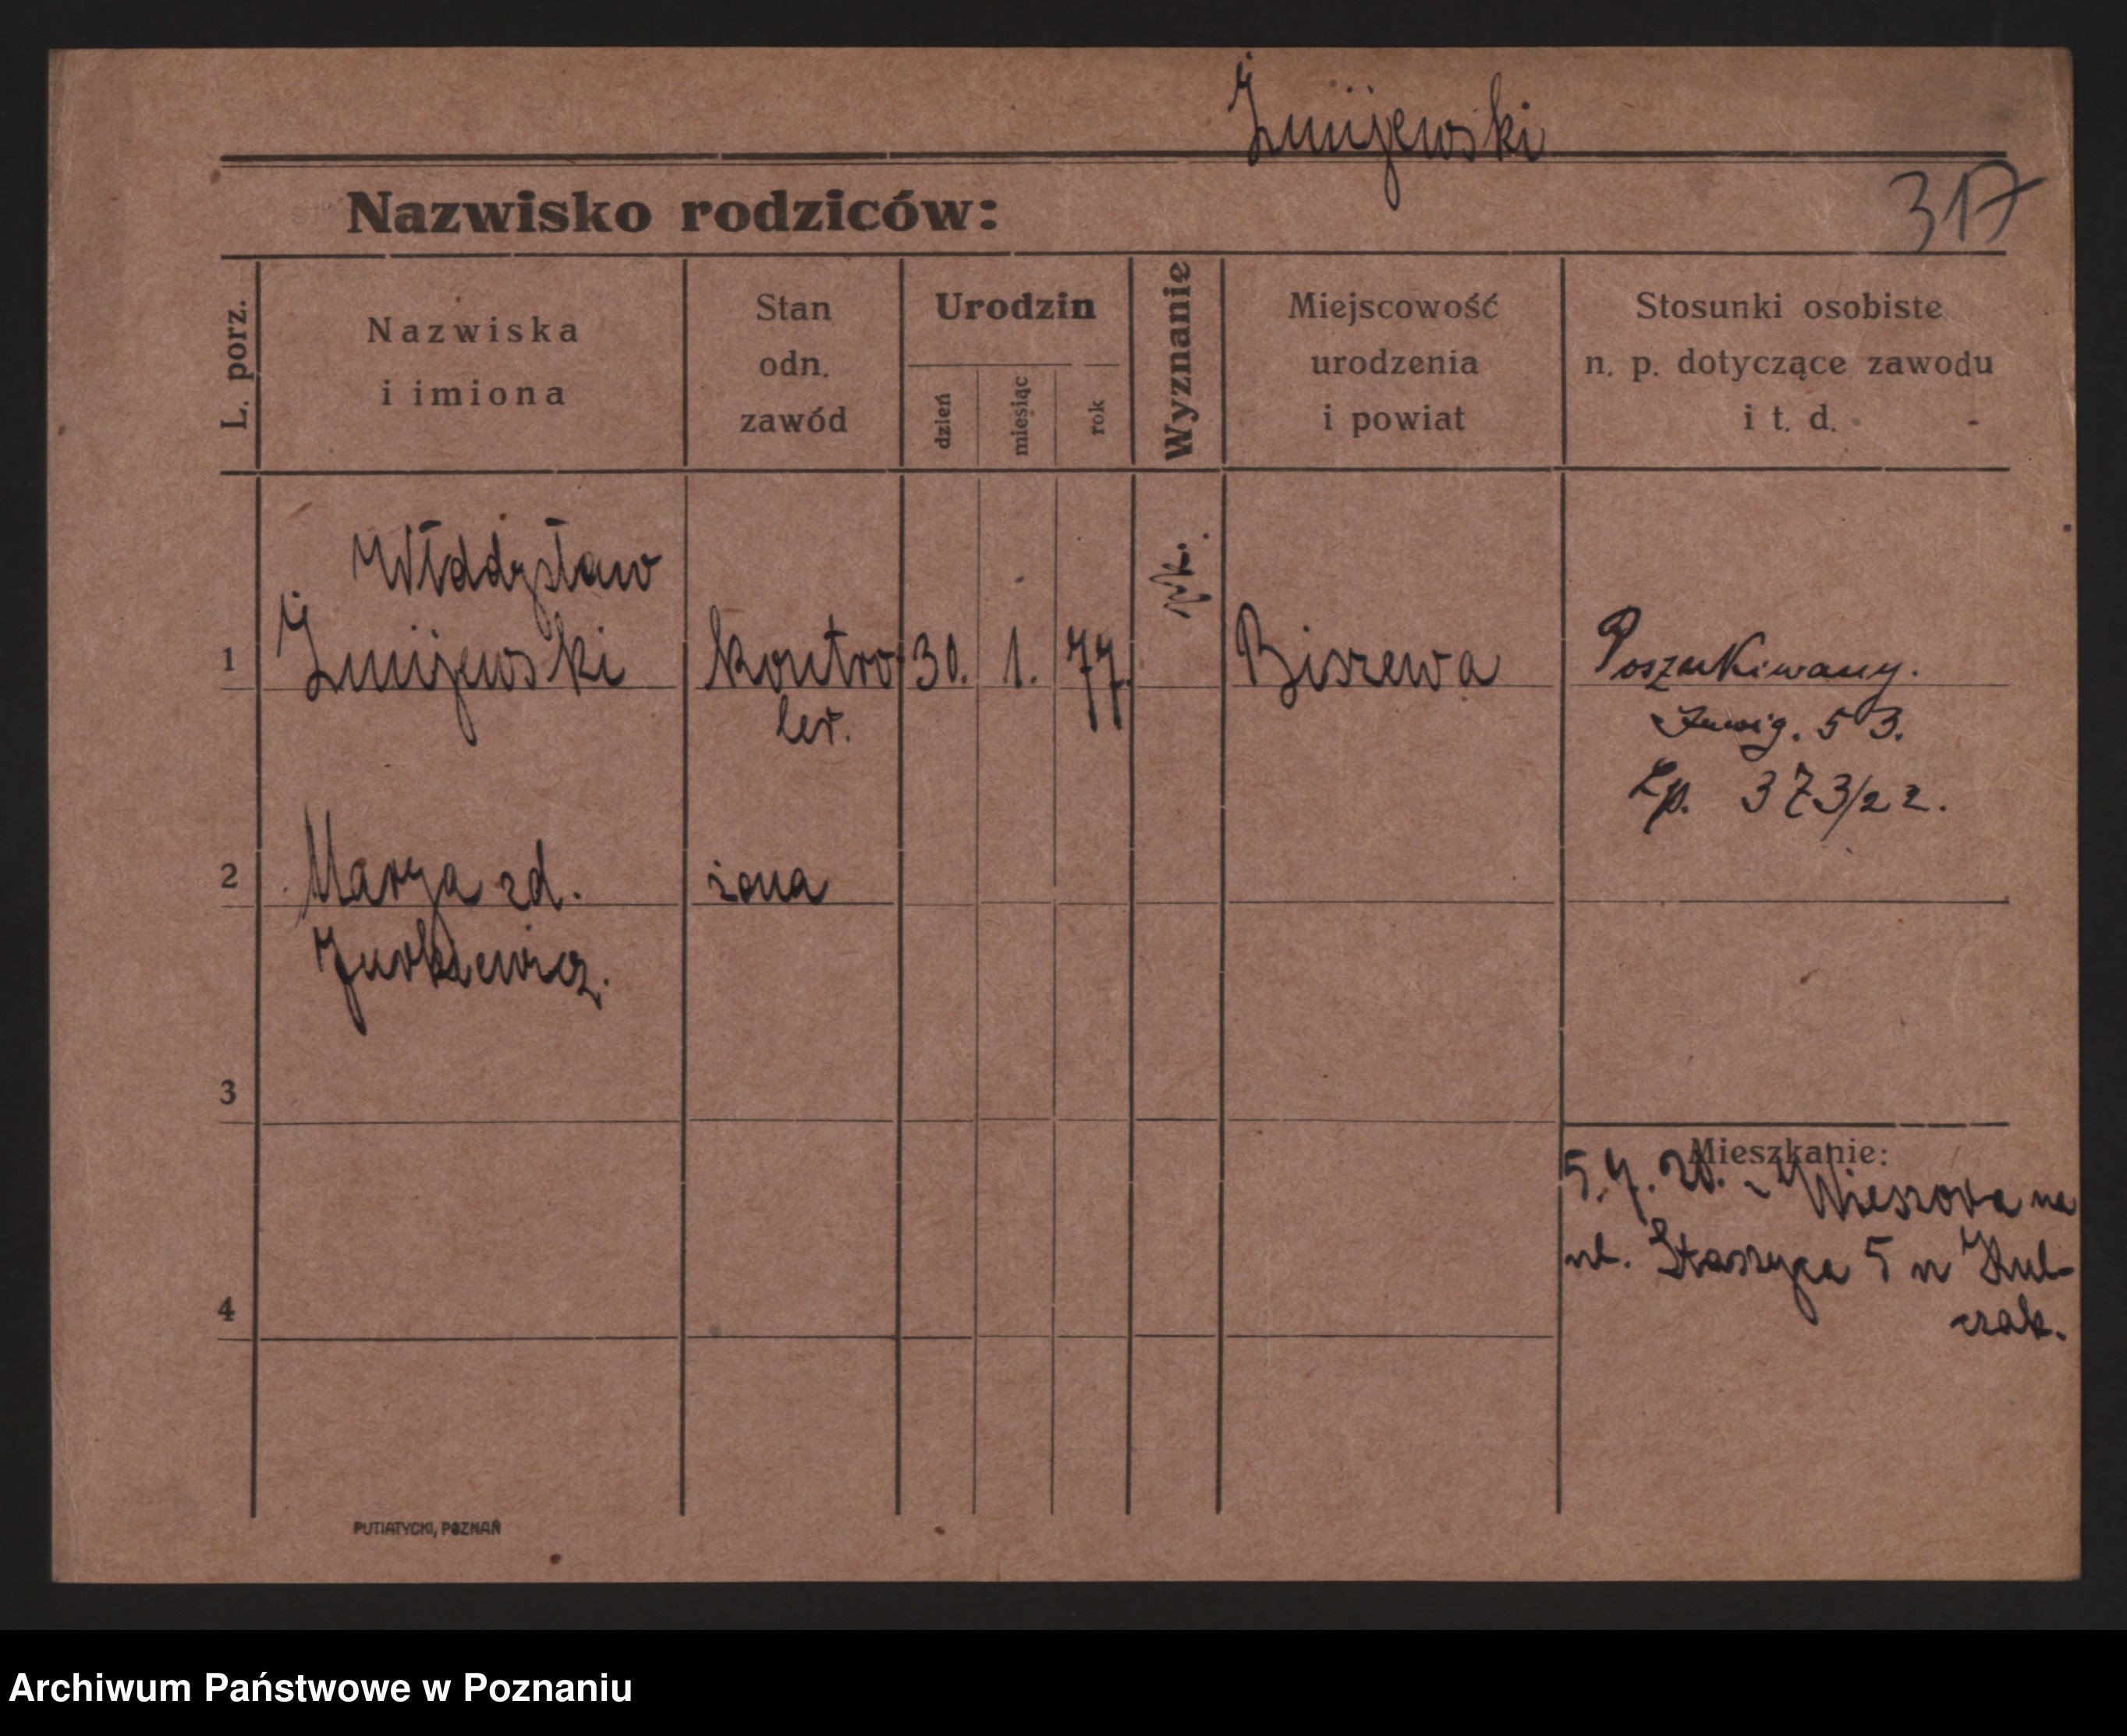 Żmijewski
317
Nazwisko rodziców:
L. porz.
Nazwiska
i imiona
Stan
odn.
zawód
Urodzin
dzień
miesiąc
rok
Wyznanie
Miejscowość
urodzenia
i powiat
Stosunki osobiste
n. p. dotyczące zawodu
i t. d.
Władysław
1 Żmijewski kontro- 30. 1. 77. Biszewa Poszukiwany.
ler. 53.
Lp. 373/22.
2 Marya zd. żona
Jurkiewicz.
3
Mieszkanie:
5.7.20. z
ul. Staszyca 5
4
PUTIATYCKI, POZNAŃ
Archiwum Państwowe w Poznaniu